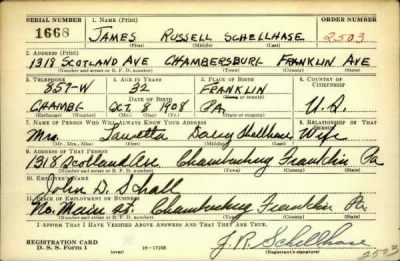 SERIAL NUMBER 1. NAME (Print) ORDER NUMBER
1668 JAMES RUSSELL SCHELLHASE 2503
(First) (Middle) (Last)
2. ADDRESS (Print)
1318 SCOTLAND AVE CHAMBERSBURG FRANKLIN AVE
(Number and street or R. F. D. number) (Town) (County) (State)
3. TELEPHONE 4. AGE IN YEARS 5. PLACE OF BIRTH 6. COUNTRY OF CITIZENSHIP
857-W 32 FRANKLIN
DATE OF BIRTH (Town or county)
CHAMBG OCT 8 1908 PA. U.S.
(Exchange) (Number) (Mo.) (Day) (Yr.) (State or country)
7. NAME OF PERSON WHO WILL ALWAYS KNOW YOUR ADDRESS 8. RELATIONSHIP OF THAT PERSON
Mrs. Schellhase Wife
(Mr., Mrs., Miss) (First) (Middle) (Last)
9. ADDRESS OF THAT PERSON
1318 Scotland Ave Chambersburg Franklin Pa
(Number and street or R. F. D. number) (Town) (County) (State)
10. EMPLOYER'S NAME
John D. Shall
11. PLACE OF EMPLOYMENT OR BUSINESS
No. Main St. Chambersburg Franklin Pa
(Number and street or R. F. D. number) (Town) (County) (State)
I AFFIRM THAT I HAVE VERIFIED ABOVE ANSWERS AND THAT THEY ARE TRUE.
REGISTRATION CARD J. R. Schellhase
D. S. S. Form 1 (over) 16—17105 (Registrant's signature)
2503